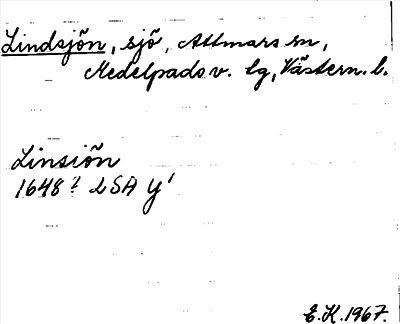 Lindsjön, sjö, Attmars sn,
Medelpads v. lg, Västern. l.
Linsiön
1648? LSA y'
E.K. 1967.